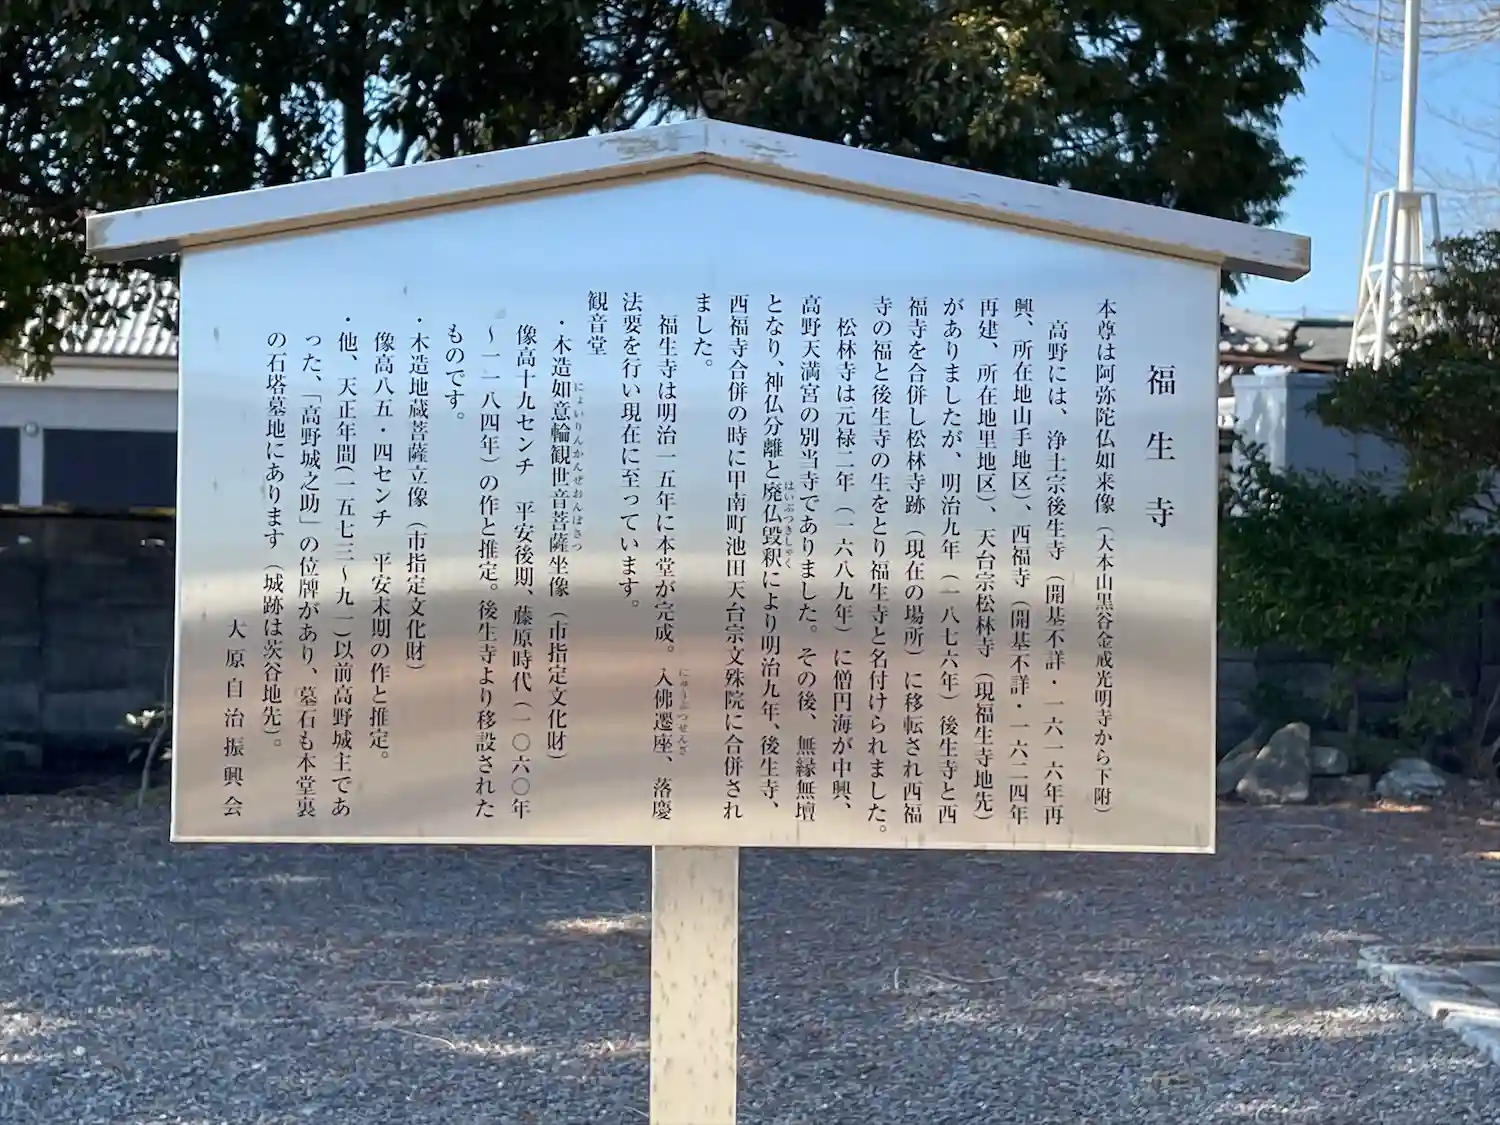 福生寺
本尊は阿弥陀仏如来像（大本山黒谷金戒光明寺から下附）
高野には、浄土宗後生寺（開基不詳・一六一六年再
興、所在地山手地区）、西福寺（開基不詳・一六二四年
再建、所在地里地区）、天台宗松林寺（現福生寺地先）
がありましたが、明治九年（一八七六年）後生寺と西
福寺を合併し松林寺跡（現在の場所）に移転され西福
寺の福と後生寺の生をとり福生寺と名付けられました。
松林寺は元禄二年（一六八九年）に僧円海が中興、
高野天満宮の別当寺でありました。その後、無縁無壇
となり、神仏分離と廃仏毀釈により明治九年、後生寺、
西福寺合併の時に甲南町池田天台宗文殊院に合併され
ました。
福生寺は明治一五年に本堂が完成。入佛遷座、落慶
法要を行い現在に至っています。
観音堂
・木造如意輪観世音菩薩坐像（市指定文化財）
像高十九センチ　平安後期、藤原時代（一〇六〇年
～一一八四年）の作と推定。後生寺より移設された
ものです。
・木造地蔵菩薩立像（市指定文化財）
像高八五・四センチ　平安末期の作と推定。
・他、天正年間(一五七三～九一)以前高野城主であ
った、「高野城之助」の位牌があり、墓石も本堂裏
の石塔墓地にあります（城跡は茨谷地先）。
大原自治振興会